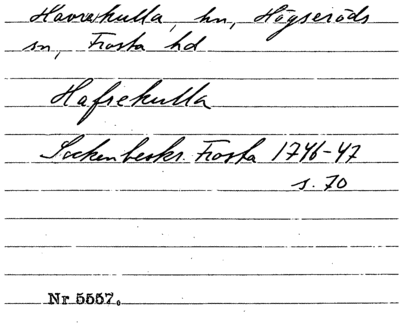 Havrekulla, hn, Högseröds
sn, Frosta hd
Hafrekulla
Sockenbeskr. Frosta 1746-47
s. 70
Nr 5557.